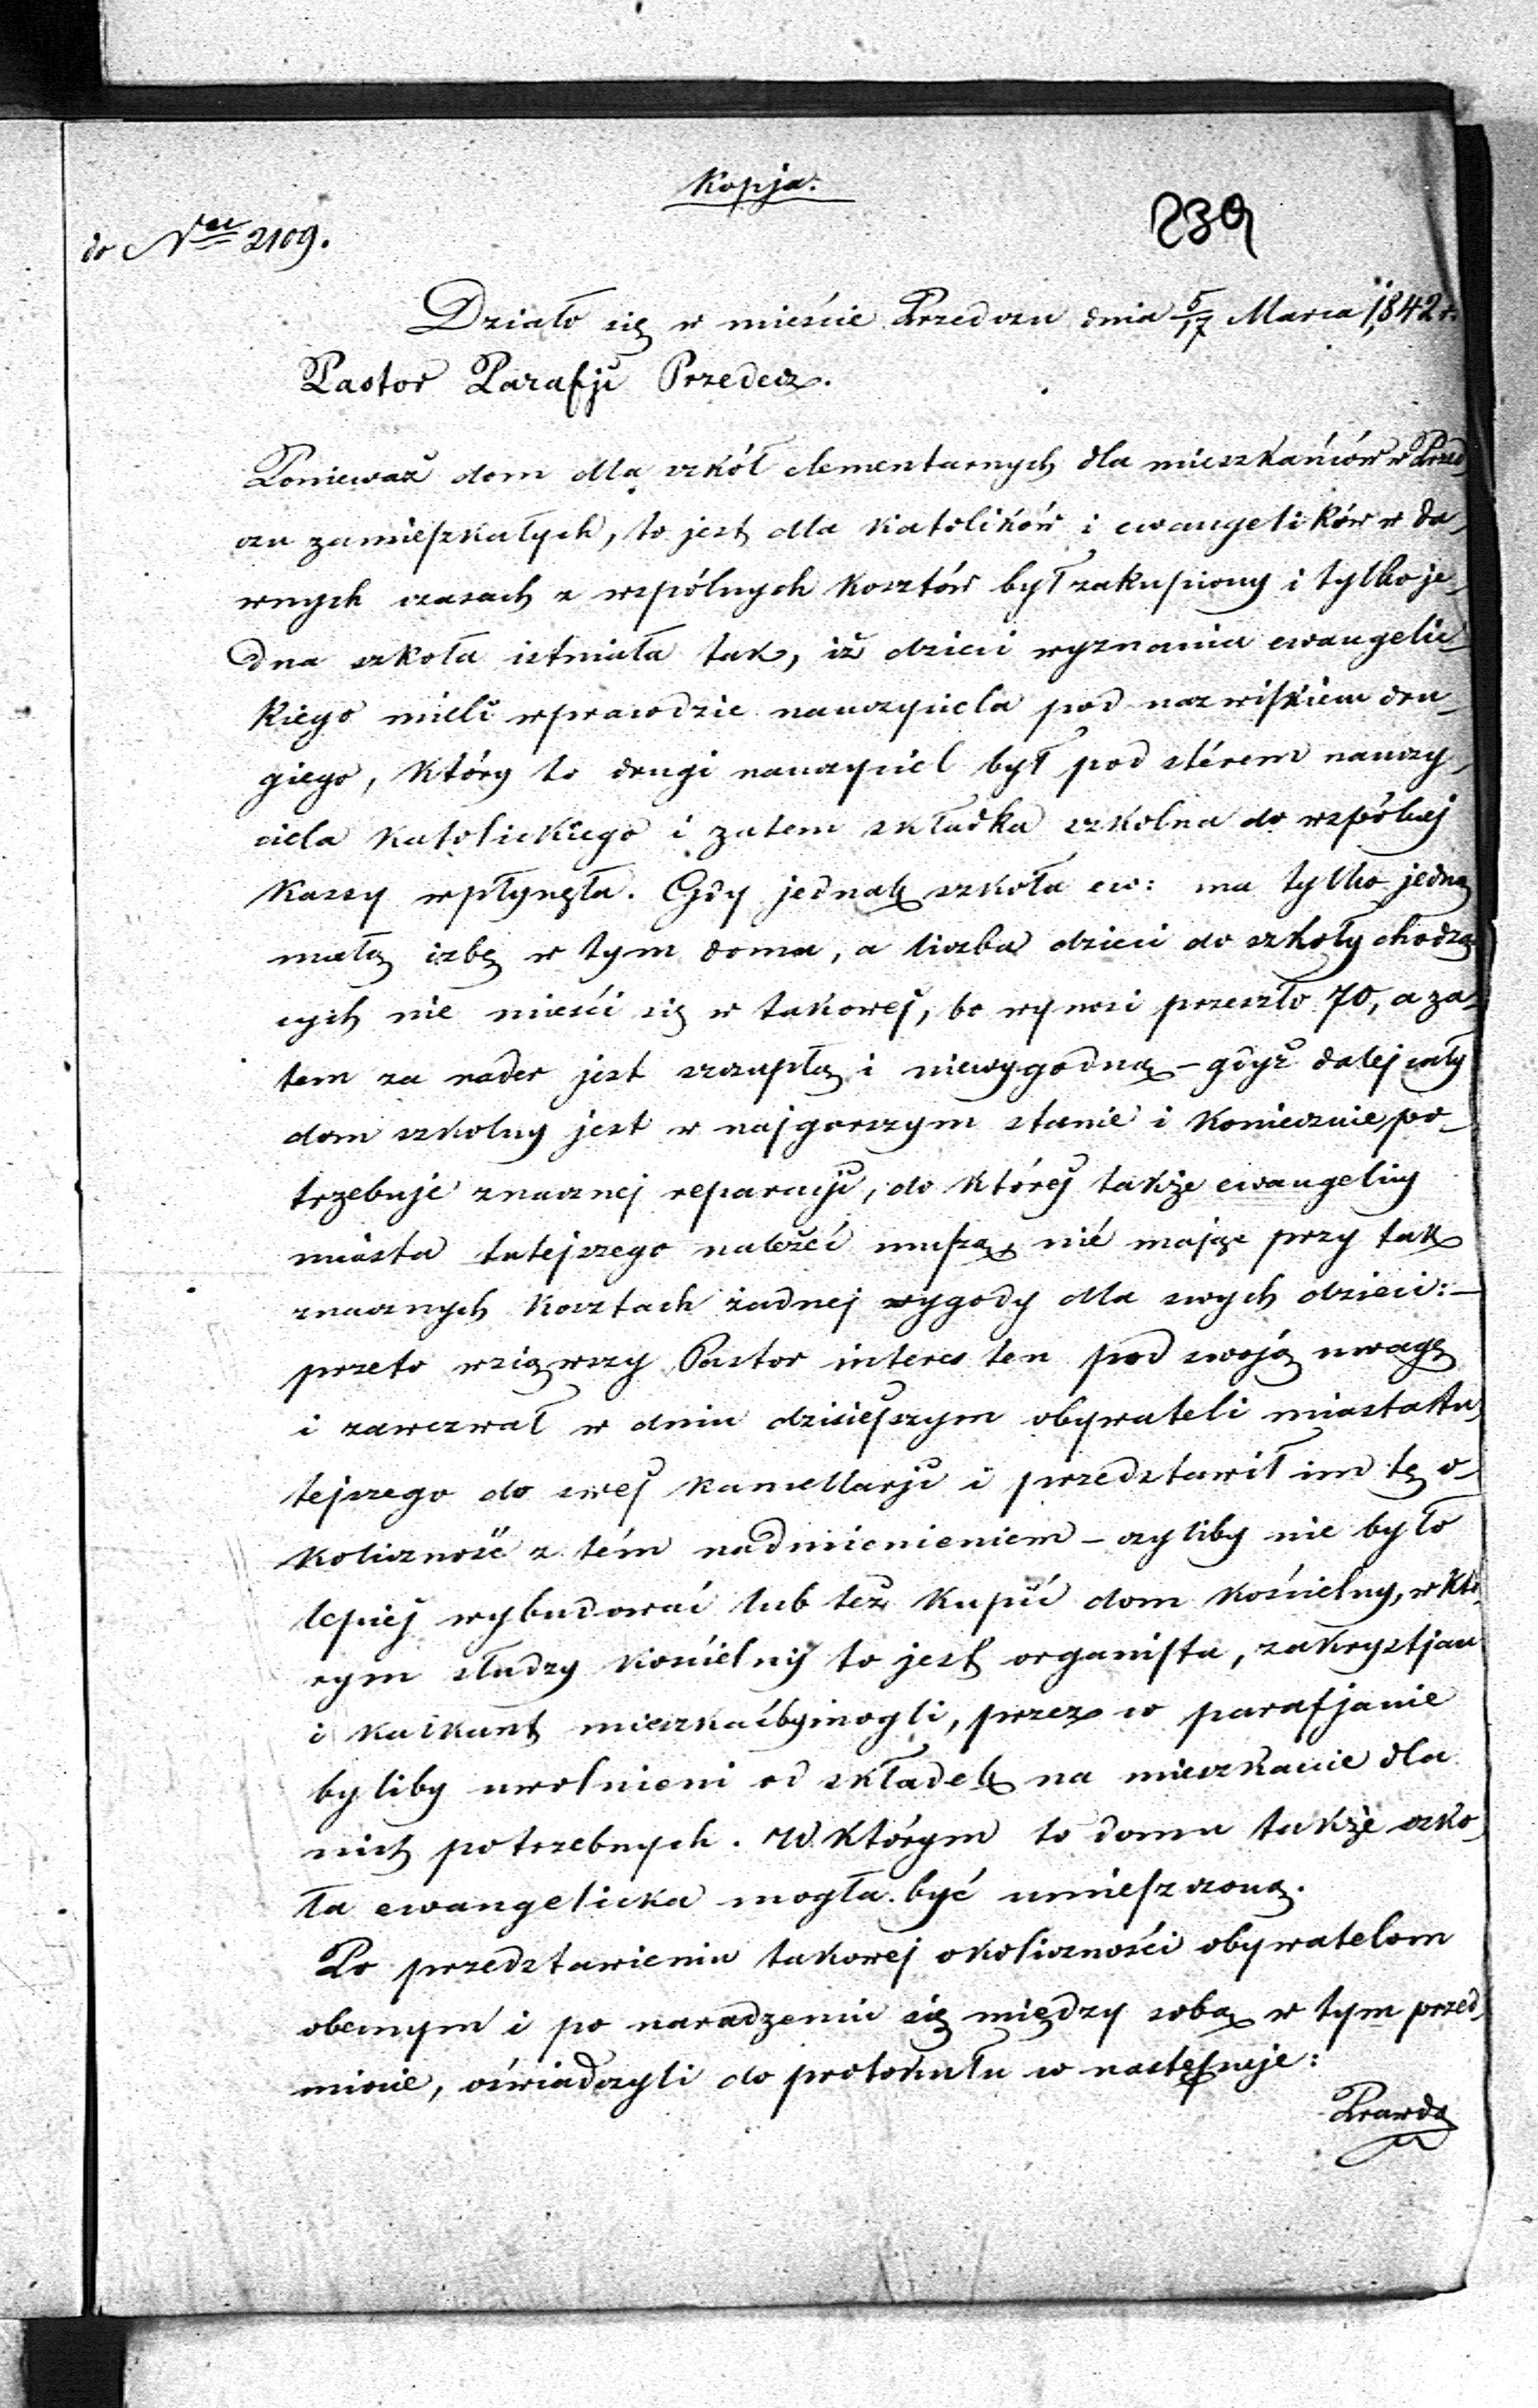 Kopja.
239
do Nru 2109.
Działo się w mieście Przedczu dnia 5/17 Marca 1842 r.
Pastor Parafji Przedecz.
Ponieważ dom dla szkół elementarnych dla mieszkańców w Przed-
czu zamieszkałych, to jest dla Katolików i ewangelików w da-
wnych czasach z wspólnych kosztów był zakupiony i tylko je-
dna szkoła istniała tak, iż dzieci wyznania ewangelic-
kiego mieli wprawdzie nauczyciela pod nazwiskiem dru-
giego, który to drugi nauczyciel był pod stérem nauczy-
ciela katolickiego i zatem składka szkolna do wspólnej
kassy wpłynęła. Gdy jednak szkoła ew: ma tylko jedną
małą izbę w tym domu, a liczba dzieci do szkoły chodzą-
cych nie mieści się w takowej, bo wynosi przeszło 70, a za-
tem za nader jest szczupłą i niewygodną - gdyż dalej cały
dom szkolny jest w najgorszym stanie i koniecznie po-
trzebuje znacznej reparacyi, do której także ewangelicy
miasta tutejszego należeć muszą, nié mając przy tak
znacznych kosztach żadnej wygody dla swych dzieci: -
przeto wziąwszy Pastor interes ten pod swoją uwagę
i zawezwał w dniu dzisiejszym obywateli miasta tu-
tejszego do swej kancellarji i przedstawił im tę o-
koliczność z tém nadmienieniem - czyliby nie było
lepiej wybudować lub też kupić dom kościelny, w któ-
rym słudzy kościelni to jest organista, zakrystjan
i kalkant mieszkać by mogli, przez co parafjanie
byliby uwolnieni od składek na mieszkanie dla
nich potrzebnych. W którym to domu także szko-
ła ewangelicka mogła być umieszczoną.
Po przedstawieniu takowej okoliczności obywatelom
obecnym i po naradzeniu się między sobą w tym przed-
miocie, oświadczyli do protokułu co następuje:
Prawdą